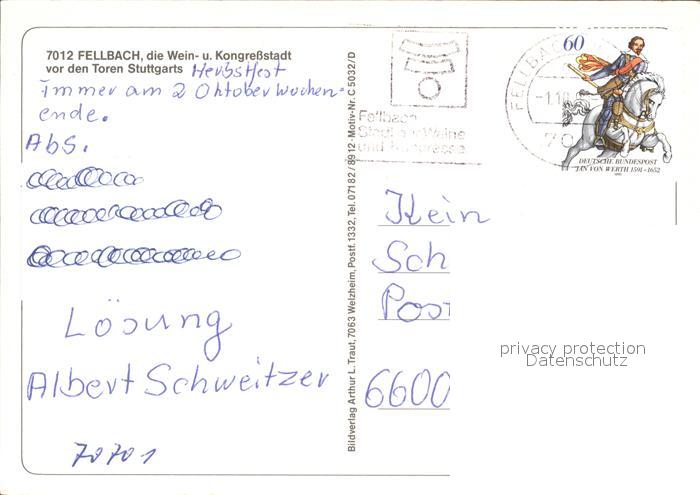 7012 FELLBACH, die Wein- u. Kongreßstadt
vor den Toren Stuttgarts Herbstfest
immer am 2 Oktober Wochen-
ende.
Abs.
Lösung
Albert Schweitzer
70701
Bildverlag Arthur L. Traut, 7063 Welzheim, Postf. 1332, Tel. 07182 / 8912 · Motiv-Nr. C 5032/D
Fellbach
Stadt der Weine
und Kongresse
FELLBACH
60
DEUTSCHE BUNDESPOST
JAN VON WERTH 1591-1652
Kein
Sch
Post
6600
privacy protection
Datenschutz